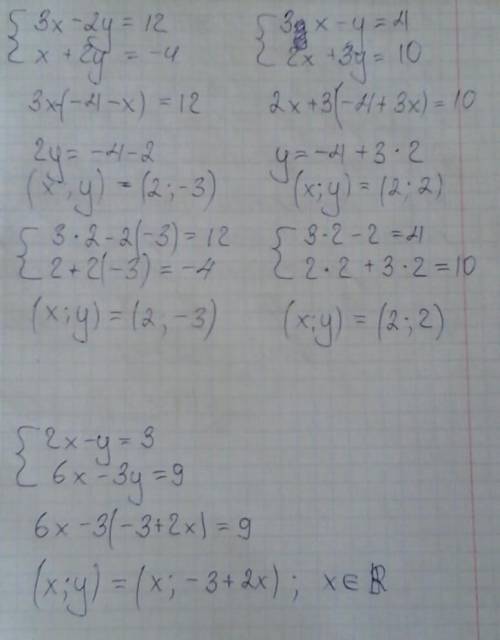 { 3x - 2y = 12
x + 2y = -4
3x-(-4-x) = 12
2y = -4-2
(x, y) = (2; -3)
{ 3·2-2(-3) = 12
2+2(-3) = -4
(x; y) = (2, -3)
{ 3x - y = 4
2x + 3y = 10
2x+3(-4+3x) = 10
y = -4+3·2
(x; y) = (2; 2)
{ 3·2-2 = 4
2·2+3·2 = 10
(x; y) = (2; 2)
{ 2x-y = 3
6x-3y = 9
6x-3(-3+2x) = 9
(x; y) = (x; -3+2x); x∈ℝ